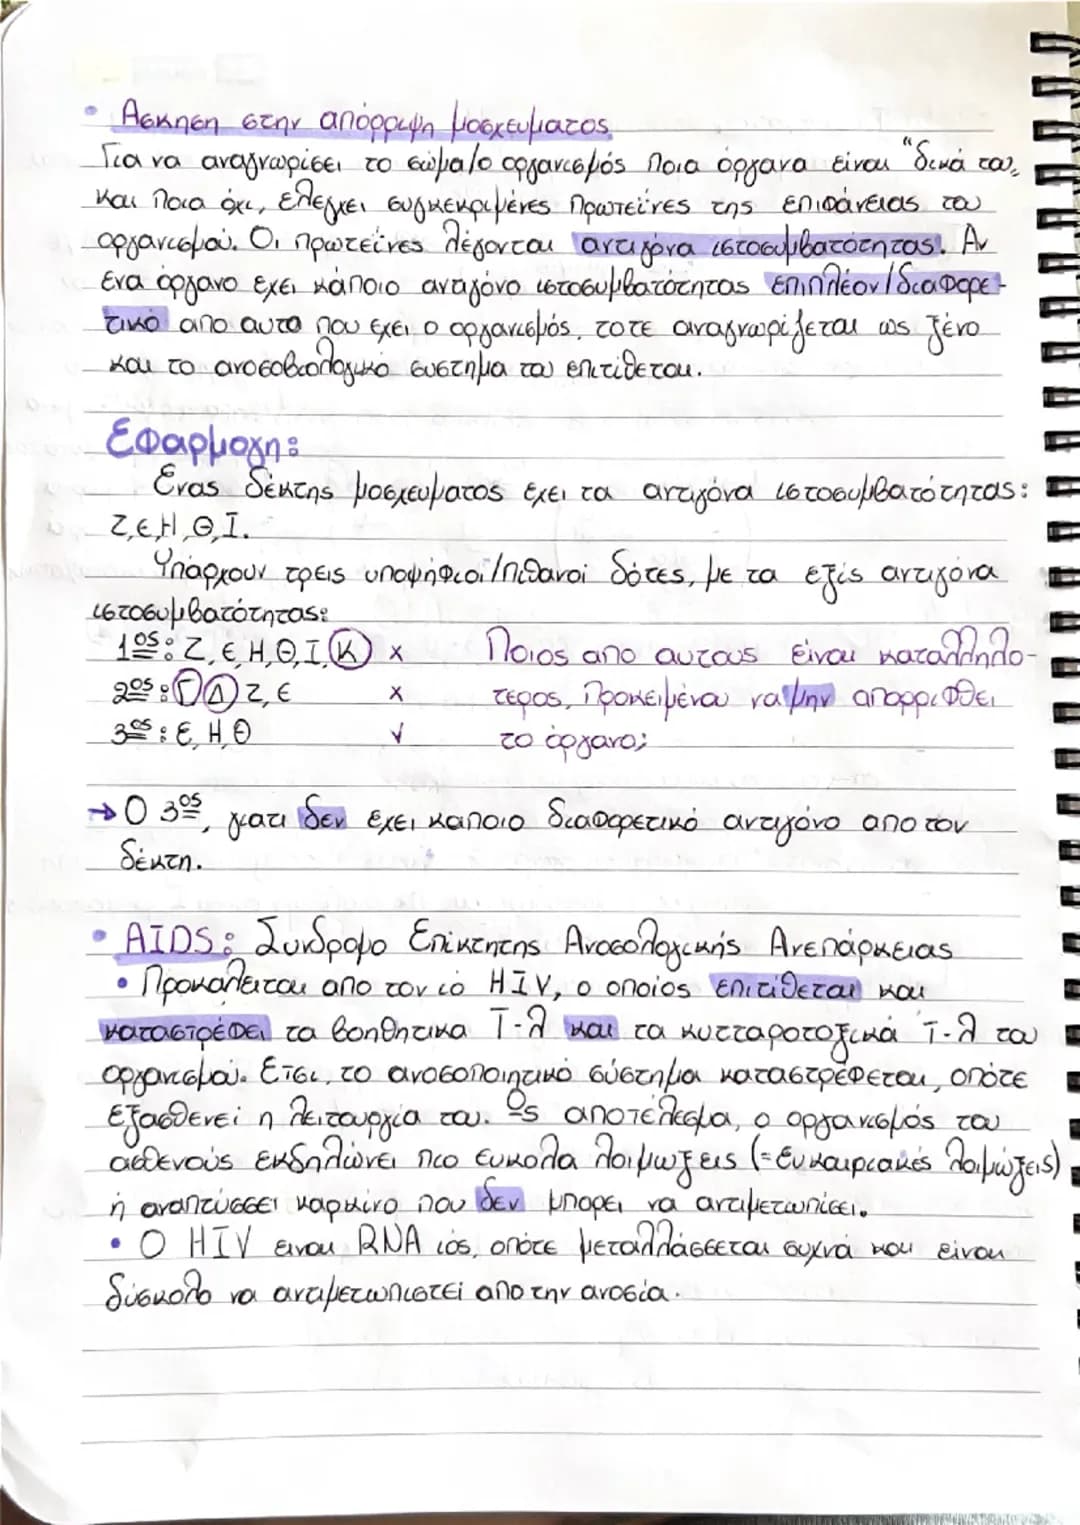 • Άσκηση στην απόρριψη μοσχεύματος
Για να αναγνωρίσει το σώμα/ο οργανισμός ποια όργανα είναι "δικά του"
και ποια όχι, ελέγχει συγκεκριμένες πρωτεΐνες της επιφάνειας του
οργανισμού. Οι πρωτεΐνες λέγονται αντιγόνα ιστοσυμβατότητας. Αν
ένα όργανο έχει κάποιο αντιγόνο ιστοσυμβατότητας επιπλέον/διαφορε-
τικό απο αυτα που έχει ο οργανισμός, τότε αναγνωρίζεται ως ξένο
και το ανοσοβιολογικό σύστημα του επιτίθεται.
Εφαρμογη:
Ένας δέκτης μοσχευματος έχει τα αντιγόνα ιστοσυμβατότητας:
Ζ,Ε,Η,Θ,Ι.
Υπάρχουν τρεις υποψήφιοι/πιθανοί δότες, με τα εξής αντιγόνα
ιστοσυμβατότητας:
1ος: Ζ,Ε,Η,Θ,Ι,Κ x
2ος: Γ Δ Ζ,Ε x
3ος: Ε,Η,Θ √
Ποιος απο αυτους είναι καταλληλο-
τερος, προκειμένου να μην απορριφθει
το όργανο;
→ Ο 3ος, γιατι δεν έχει καποιο διαφορετικό αντιγόνο απο τον
δέκτη.
• AIDS: Σύνδρομο Επίκτητης Ανοσολογικής Ανεπάρκειας
• Προκαλείται απο τον ιό HIV, ο οποίος επιτίθεται και
καταστρέφει τα βοηθητικα Τ-λ και τα κυτταροτοξικά Τ-λ του
οργανισμού. Έτσι, το ανοσοποιητικό σύστημα καταστρέφεται, οπότε
εξασθενεί η λειτουργία του. Ως αποτέλεσμα, ο οργανισμός του
ασθενούς εκδηλώνει πιο ευκολα λοιμωξεις (=Ευκαιριακές λοιμώξεις)
ή αναπτύσσει καρκίνο που δεν μπορει να αντιμετωπίσει.
• Ο HIV ειναι RNA ιός, οπότε μεταλλάσσεται συχνά και είναι
δύσκολο να αντιμετωπιστεί απο την ανοσία.